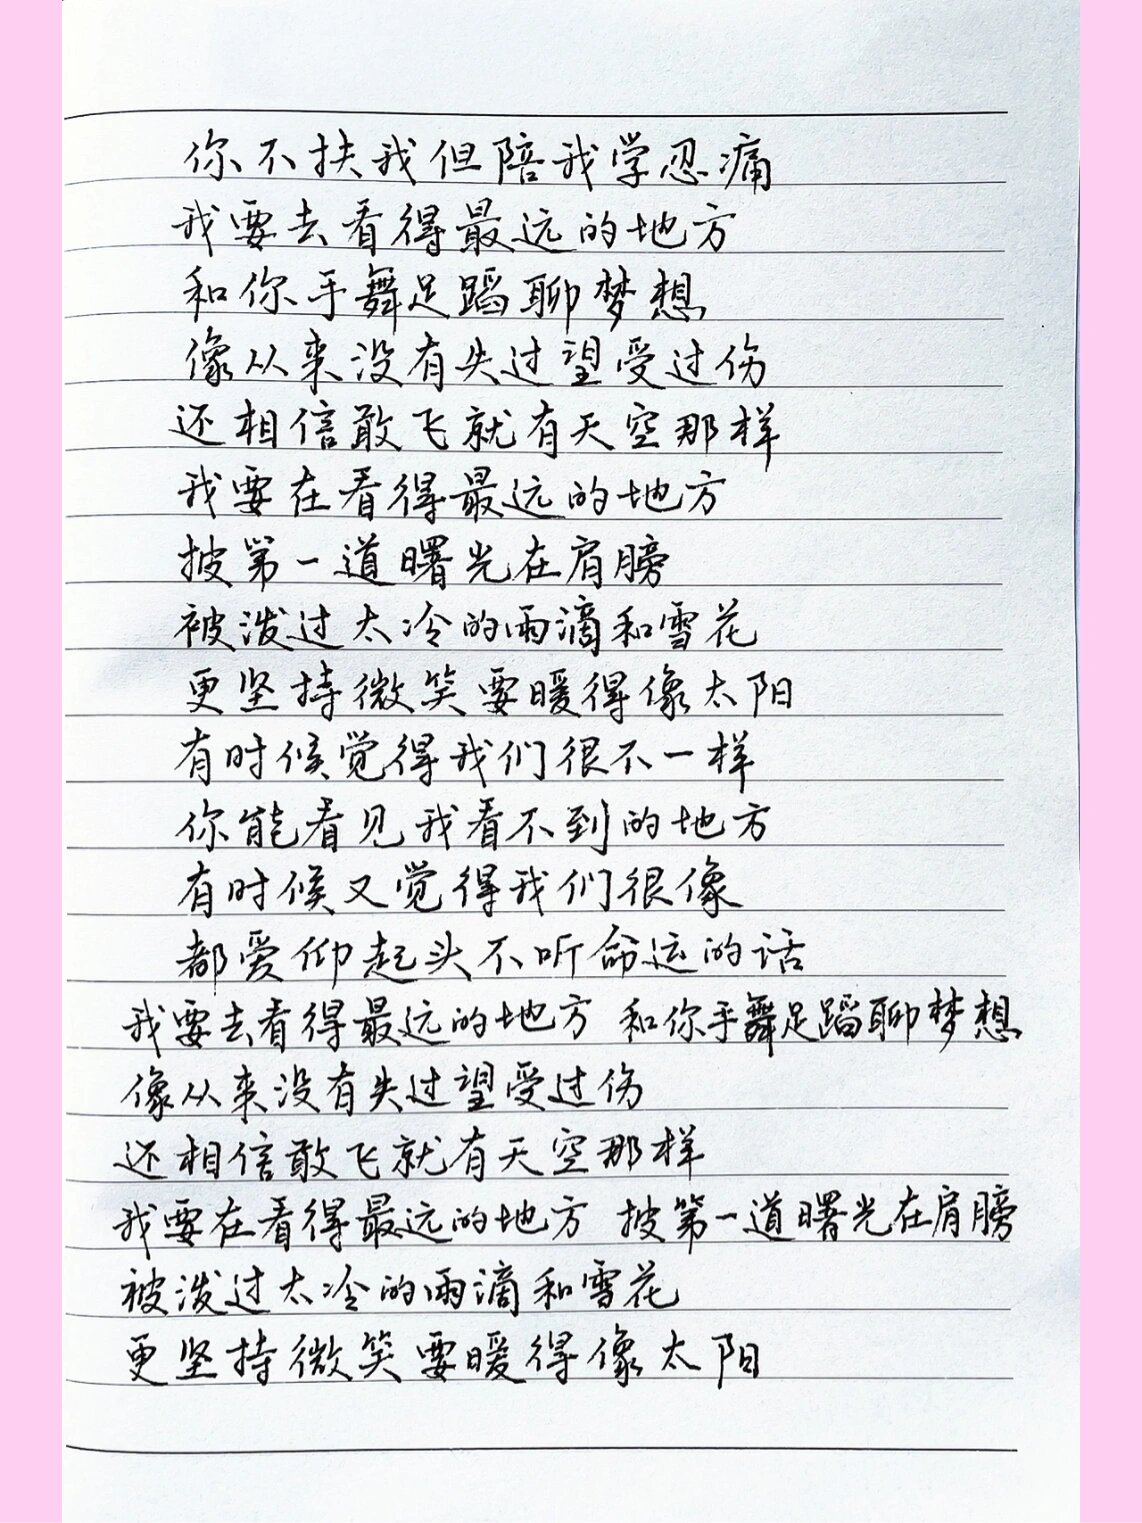 你不扶我但陪我学忍痛
我要去看得最远的地方
和你手舞足蹈聊梦想
像从来没有失过望受过伤
还相信敢飞就有天空那样
我要在看得最远的地方
披第一道曙光在肩膀
被泼过太冷的雨滴和雪花
更坚持微笑要暖得像太阳
有时候觉得我们很不一样
你能看见我看不到的地方
有时候又觉得我们很像
都爱仰起头不听命运的话
我要去看得最远的地方 和你手舞足蹈聊梦想
像从来没有失过望受过伤
还相信敢飞就有天空那样
我要在看得最远的地方 披第一道曙光在肩膀
被泼过太冷的雨滴和雪花
更坚持微笑要暖得像太阳